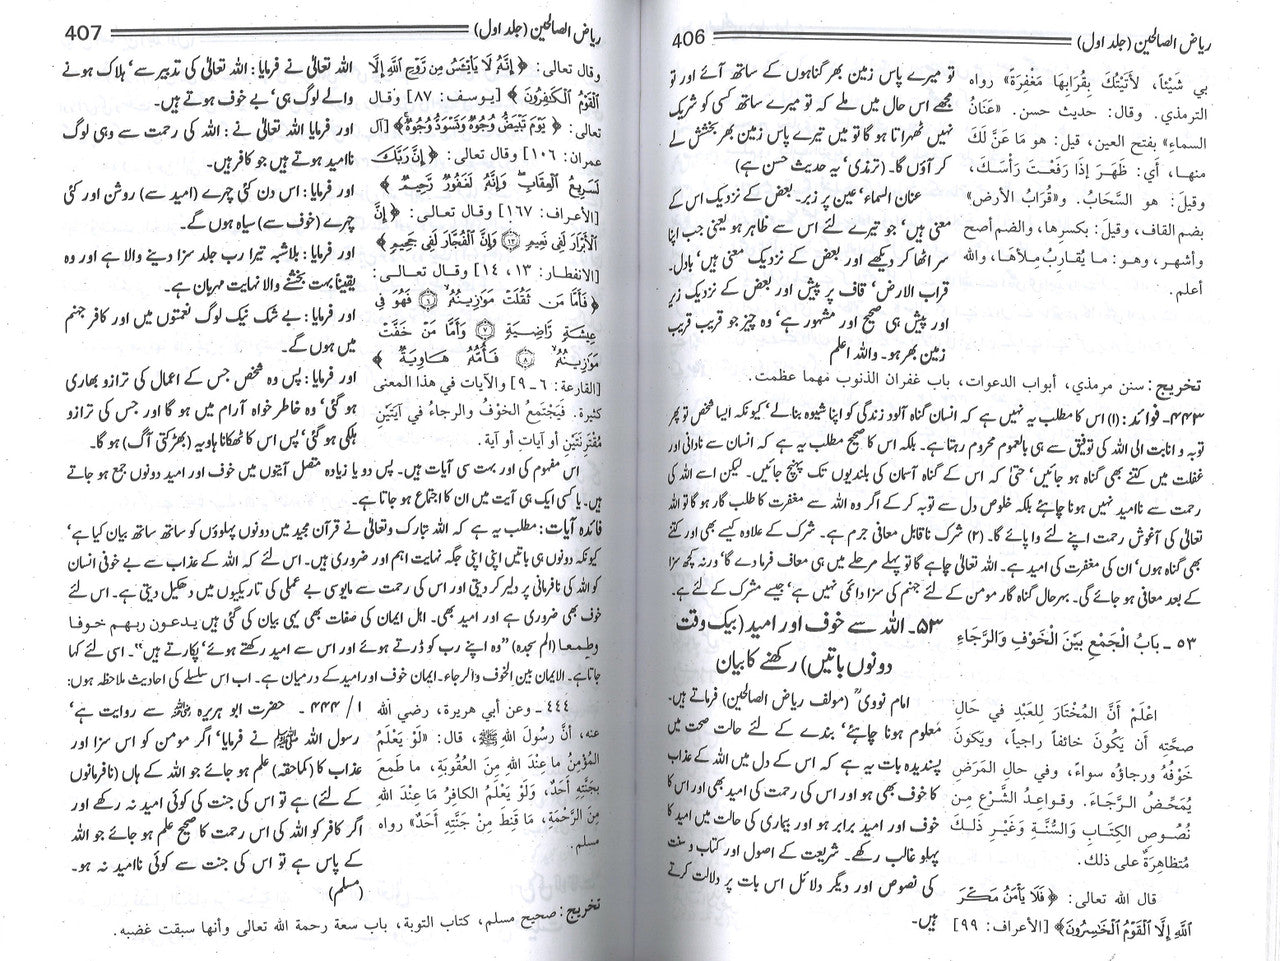 ریاض الصالحین (جلد اول) 406
بي شَيْئاً، لأَتَيْتُكَ بِقُرَابِهَا مَغْفِرَةً» رواه
الترمذي. وقال: حديث حسن. «عَنَانُ
السماءِ» بفتح العين، قيل: هو مَا عَنَّ لَكَ
منها، أي: ظَهَرَ إذَا رَفَعْتَ رَأْسَكَ،
وقيلَ: هو السَّحَابُ. و«قُرَابُ الأرض»
بضم القاف، وقيلَ: بكسرِها، والضم أصح
وأشهر، وهو: ما يُقارِبُ مِلأهَا، والله
أعلم.
تو میرے پاس زمین بھر گناہوں کے ساتھ آئے اور تو
مجھے اس حال میں ملے کہ تو میرے ساتھ کسی کو شریک
نہیں ٹھہراتا ہو گا تو میں تیرے پاس زمین بھر بخشش لے
کر آؤں گا۔ (ترمذی‘ یہ حدیث حسن ہے)
عنان السماء‘ عین پر زبر۔ بعض کے نزدیک اس کے
معنی ہیں‘ جو تیرے لئے اس سے ظاہر ہو یعنی جب اپنا
سر اٹھا کر دیکھے اور بعض کے نزدیک معنی ہیں‘ بادل۔
قراب الارض‘ قاف پر پیش اور بعض کے نزدیک زیر
اور پیش ہی صحیح اور مشہور ہے‘ وہ چیز جو قریب قریب
زمین بھر ہو۔ واللہ اعلم
تخریج: سنن مرمذي، أبواب الدعوات، باب غفران الذنوب مهما عظمت.
۴۴۳۔ فوائد: (۱) اس کا مطلب یہ نہیں ہے کہ انسان گناہ آلود زندگی کو اپنا شیوہ بنا لے‘ کیونکہ ایسا شخص تو پھر
توبہ و انابت الی اللہ کی توفیق سے ہی بالعموم محروم رہتا ہے۔ بلکہ اس کا صحیح مطلب یہ ہے کہ انسان سے نادانی اور
غفلت میں کتنے بھی گناہ ہو جائیں‘ حتیٰ کہ اس کے گناہ آسمان کی بلندیوں تک پہنچ جائیں۔ لیکن اسے اللہ کی
رحمت سے ناامید نہیں ہونا چاہئے بلکہ خلوص دل سے توبہ کر کے اگر وہ اللہ سے مغفرت کا طلب گار ہو گا تو اللہ
تعالیٰ کی آغوش رحمت اپنے لئے وا پائے گا۔ (۲) شرک ناقابل معافی جرم ہے۔ شرک کے علاوہ کیسے بھی اور کتنے
بھی گناہ ہوں‘ ان کی مغفرت کی امید ہے۔ اللہ تعالیٰ چاہے گا تو پہلے مرحلے میں ہی معاف فرما دے گا‘ ورنہ کچھ سزا
کے بعد معافی ہو جائے گی۔ بہرحال گناہ گار مومن کے لئے جہنم کی سزا دائمی نہیں ہے‘ جیسے مشرک کے لئے ہے۔
٥٣ ـ بَابُ الْجَمْعِ بَيْنَ الْخَوْفِ وَالرَّجَاءِ
۵۳۔ اللہ سے خوف اور امید (بیک وقت
دونوں باتیں) رکھنے کا بیان
اعْلَمْ أَنَّ المُخْتَارَ لِلعَبْدِ في حَالِ
صحَّتِه أن يَكُونَ خائفاً راجياً، ويَكونَ
خَوْفُهُ ورجاؤُه سواءً، وفي حالِ المَرَضِ
يُمَحِّضُ الرَّجَاءَ. وقواعِدُ الشَّرْعِ مِن
نُصُوصِ الكِتَابِ والسُّنَّةِ وَغَيْرِ ذَلكَ
مُتظاهِرَةٌ على ذلك.
قال الله تعالى: ﴿فَلَا يَأْمَنُ مَكْرَ
اللَّهِ إِلَّا الْقَوْمُ الْخَاسِرُونَ﴾ [الأعراف: ٩٩]
امام نووی (مولف ریاض الصالحین) فرماتے ہیں۔
معلوم ہونا چاہئے‘ بندے کے لئے حالت صحت میں
پسندیدہ بات یہ ہے کہ اس کے دل میں اللہ کے عذاب
کا خوف بھی ہو اور اس کی رحمت کی امید بھی اور اس کا
خوف اور امید برابر ہو اور بیماری کی حالت میں امید کا
پہلو غالب رکھے۔ شریعت کے اصول اور کتاب و سنت
کی نصوص اور دیگر دلائل اس بات پر دلالت کرتے
ہیں۔
ریاض الصالحین (جلد اول) 407
وقال تعالى: ﴿إِنَّهُ لَا يَيْأَسُ مِن رَّوْحِ اللَّهِ إِلَّا
الْقَوْمُ الْكَافِرُونَ﴾ [يوسف: ٨٧] وقال
تعالى: ﴿يَوْمَ تَبْيَضُّ وُجُوهٌ وَتَسْوَدُّ وُجُوهٌ﴾ [آل
عمران: ١٠٦] وقال تعالى: ﴿إِنَّ رَبَّكَ
لَسَرِيعُ الْعِقَابِ وَإِنَّهُ لَغَفُورٌ رَّحِيمٌ﴾
[الأعراف: ١٦٧] وقال تعالى: ﴿إِنَّ
الْأَبْرَارَ لَفِي نَعِيمٍ ۝١٣ وَإِنَّ الْفُجَّارَ لَفِي جَحِيمٍ﴾
[الانفطار: ١٣، ١٤] وقال تعالى:
﴿فَأَمَّا مَن ثَقُلَتْ مَوَازِينُهُ ۝٦ فَهُوَ فِي
عِيشَةٍ رَّاضِيَةٍ ۝٧ وَأَمَّا مَنْ خَفَّتْ
مَوَازِينُهُ ۝٨ فَأُمُّهُ هَاوِيَةٌ﴾
[القارعة: ٦ ـ ٩] والآيات في هذا المعنى
كثيرة. فَيَجْتَمِعُ الخَوْفُ والرجاءُ في آيَتَيْنِ
مُقْتَرِنَتَيْنِ أو آيات أو آية.
اللہ تعالیٰ نے فرمایا: اللہ تعالیٰ کی تدبیر سے‘ ہلاک ہونے
والے لوگ ہی‘ بے خوف ہوتے ہیں۔
اور فرمایا اللہ تعالیٰ نے: اللہ کی رحمت سے وہی لوگ
ناامید ہوتے ہیں جو کافر ہیں۔
اور فرمایا: اس دن کئی چہرے (امید سے) روشن اور کئی
چہرے (خوف سے) سیاہ ہوں گے۔
اور فرمایا: بلاشبہ تیرا رب جلد سزا دینے والا ہے اور وہ
یقیناً بہت بخشنے والا نہایت مہربان ہے۔
اور فرمایا: بے شک نیک لوگ نعمتوں میں اور کافر جہنم
میں ہوں گے۔
اور فرمایا: پس وہ شخص جس کے اعمال کی ترازو بھاری
ہو گئی‘ وہ خاطر خواہ آرام میں ہو گا اور جس کی ترازو
ہلکی ہو گئی‘ پس اس کا ٹھکانا ہاویہ (بھڑکتی آگ) ہو گا۔
اس مفہوم کی اور بہت سی آیات ہیں۔ پس دو یا زیادہ متصل آیتوں میں خوف اور امید دونوں جمع ہو جاتے
ہیں۔ یا کسی ایک ہی آیت میں ان کا اجتماع ہو جاتا ہے۔
فائدہ آیات: مطلب یہ ہے کہ اللہ تبارک وتعالیٰ نے قرآن مجید میں دونوں پہلوؤں کو ساتھ ساتھ بیان کیا ہے‘
کیونکہ دونوں ہی باتیں اپنی اپنی جگہ نہایت اہم اور ضروری ہیں۔ اس لئے کہ اللہ کے عذاب سے بے خوفی انسان
کو اللہ کی نافرمانی پر دلیر کر دیتی اور اس کی رحمت سے مایوسی بے عملی کی تاریکیوں میں دھکیل دیتی ہے۔ اس لئے
خوف بھی ضروری ہے اور امید بھی۔ اہل ایمان کی صفات بھی یہی بیان کی گئی ہیں یدعون ربهم خوفا
وطمعا (الم سجدہ) ”وہ اپنے رب کو ڈرتے ہوئے اور اس سے امید رکھتے ہوئے‘ پکارتے ہیں“۔ اسی لئے کہا
جاتا ہے۔ الایمان بین الخوف والرجاء۔ ایمان خوف اور امید کے درمیان ہے۔ اب اس سلسلے کی احادیث ملاحظہ ہوں:
٤٤٤ ـ وعن أبي هريرة، رضي الله
عنه، أنَّ رسُولَ اللهِ ﷺ، قال: «لَوْ يَعْلَمُ
المُؤْمِنُ ما عِنْدَ اللهِ مِنَ العُقُوبَةِ، ما طَمِعَ
بجَنَّتِهِ أَحَدٌ، وَلَوْ يَعْلَمُ الكافِرُ مَا عِنْدَ اللهِ
مِنَ الرَّحْمَةِ، مَا قَنِطَ مِنْ جَنَّتِهِ أَحَدٌ» رواه
مسلم.
۱ / ۴۴۴۔ حضرت ابو ہریرہ رضی اللہ عنہ سے روایت ہے‘
رسول اللہ ﷺ نے فرمایا‘ اگر مومن کو اس سزا اور
عذاب کا (کماحقہ) علم ہو جائے جو اللہ کے ہاں (نافرمانوں
کے لئے) ہے تو اس کی جنت کی کوئی امید نہ رکھے اور
اگر کافر کو اللہ کی اس رحمت کا صحیح علم ہو جائے جو اللہ
کے پاس ہے تو اس کی جنت سے کوئی ناامید نہ ہو۔
(مسلم)
تخریج: صحيح مسلم، كتاب التوبة، باب سعة رحمة الله تعالى وأنها سبقت غضبه.